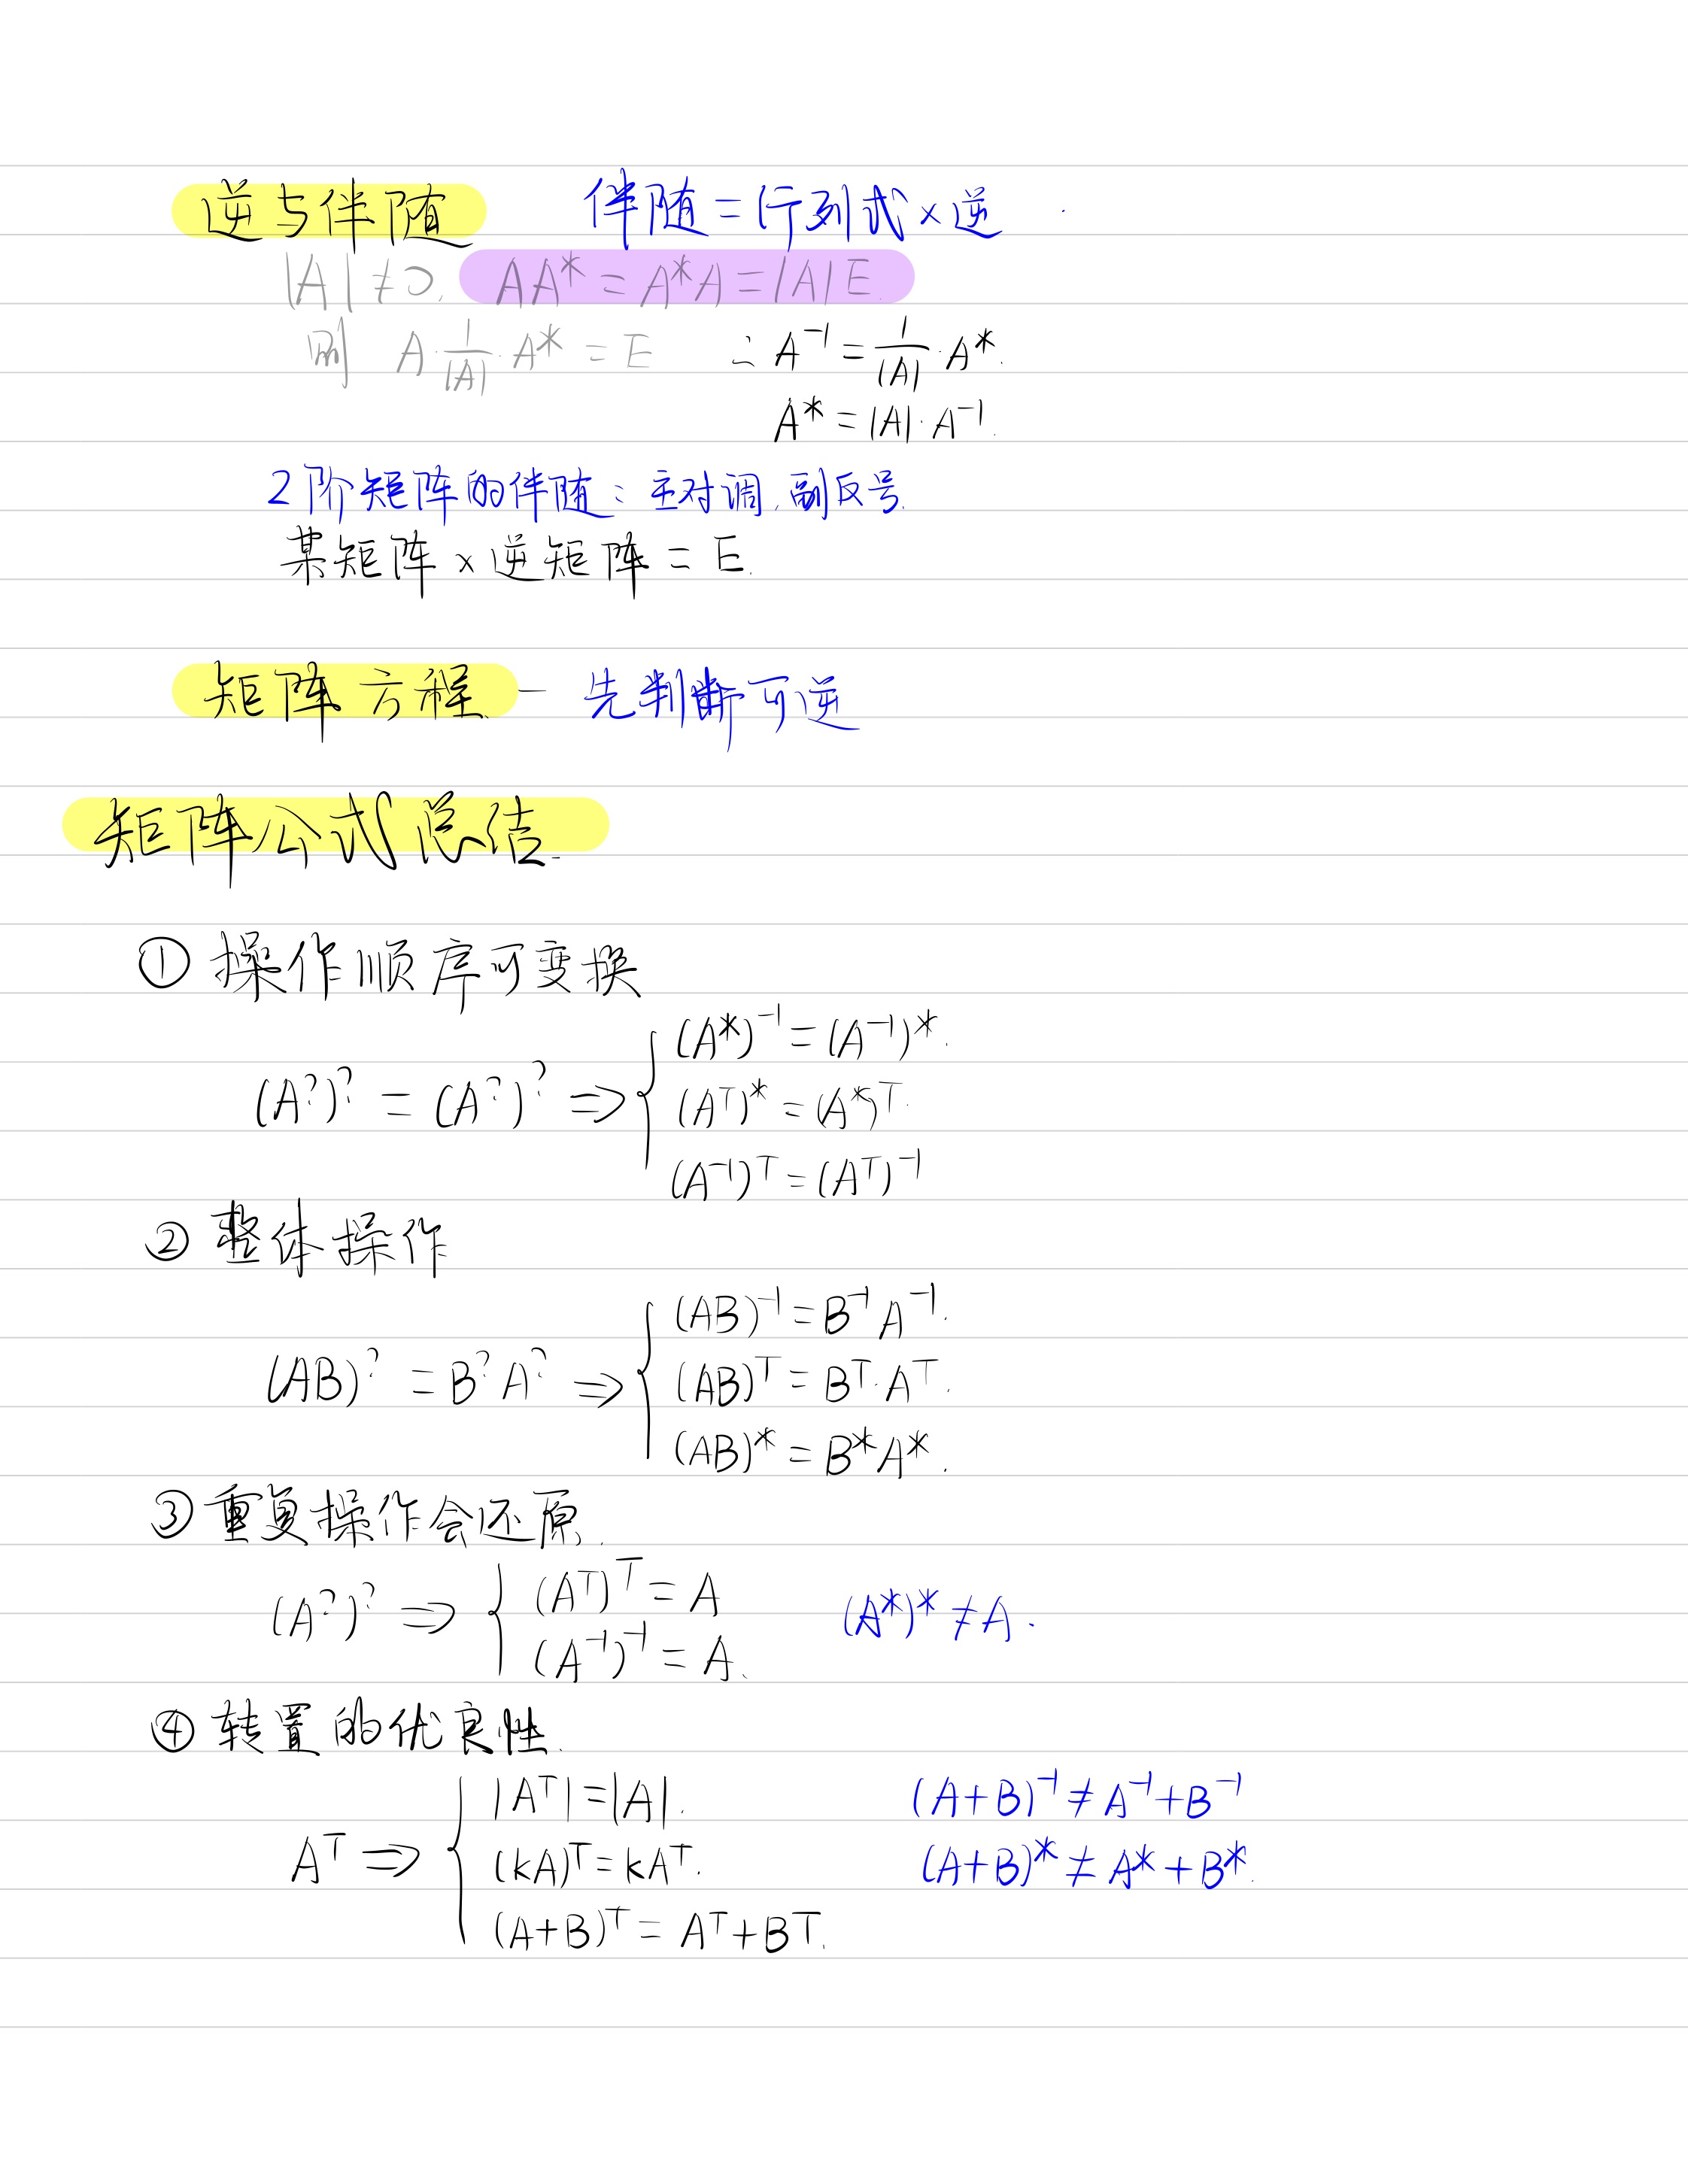 逆与伴随 伴随=行列式×逆
|A|≠0, AA*=A*A=|A|E.
则 A·1/|A|·A*=E ∴A⁻¹=1/|A|·A*.
A*=|A|·A⁻¹.
2阶矩阵的伴随:主对调,副反号.
某矩阵×逆矩阵=E.
矩阵方程 — 先判断可逆
矩阵公式总结.
① 操作顺序可变换
(A*)⁻¹=(A⁻¹)*.
(A?)?=(A?)? ⇒ { (Aᵀ)*=(A*)ᵀ.
(A⁻¹)ᵀ=(Aᵀ)⁻¹
② 整体操作
(AB)⁻¹=B⁻¹A⁻¹.
(AB)?=B?A? ⇒ { (AB)ᵀ=Bᵀ·Aᵀ.
(AB)*=B*A*.
③ 重复操作会还原.
(A?)? ⇒ { (Aᵀ)ᵀ=A (A*)*≠A.
(A⁻¹)⁻¹=A.
④ 转置的优良性.
|Aᵀ|=|A|. (A+B)⁻¹≠A⁻¹+B⁻¹
Aᵀ ⇒ { (kA)ᵀ=kAᵀ. (A+B)*≠A*+B*.
(A+B)ᵀ=Aᵀ+Bᵀ.